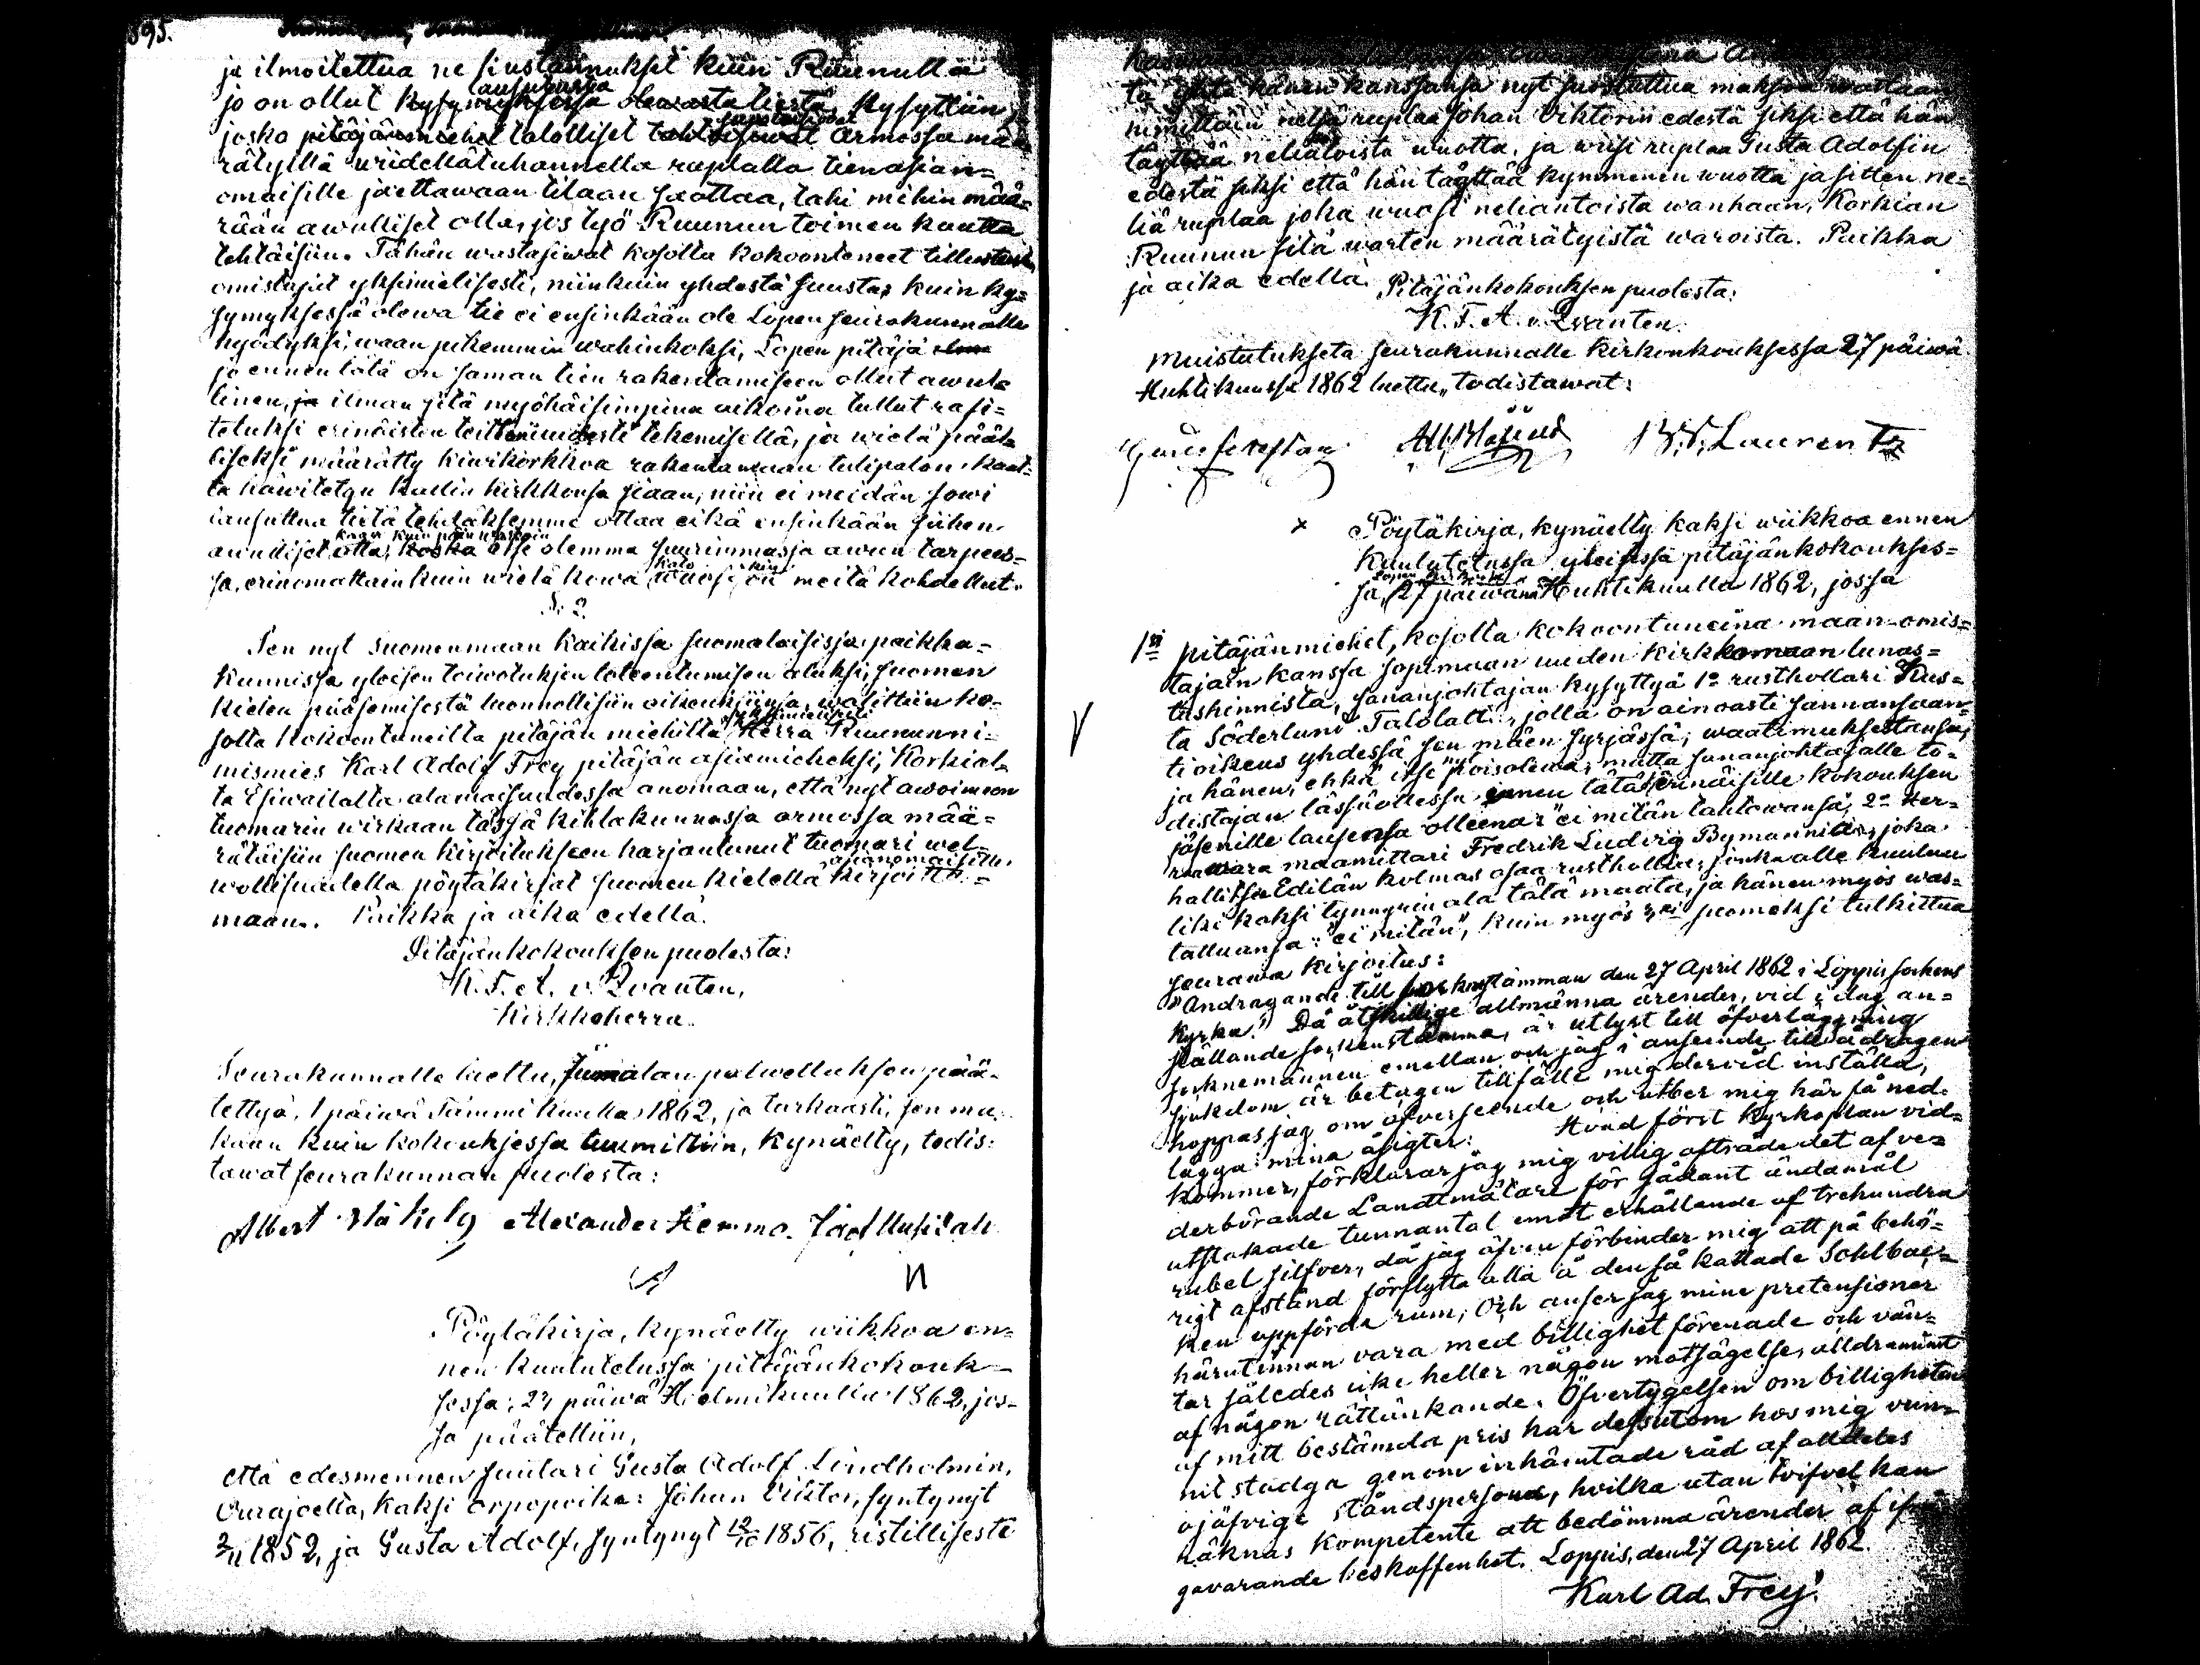 895.
ja ilmoitettua ne kustannukset kuin Ruunulla
lausuttawa
jo on ollut kysymyksessä olewasta tiestä, kysyttiin,
suostuisiwat
josko pitäjänmiehet talolliset tahtoisiwat Armossa mää-
rätyillä wiidellätuhannella ruplalla tienasian=
omaisille jaettawaan tilaan saattaa, tahi mihin mää=
rään awulliset olla, jos työ Ruunun toimen kautta
tehtäisiin. Tähän wastasiwat kosolta kokoontuneet
omistajat yksimielisesti, niinkuin yhdestä suusta, kuin ky=
symyksessä olewa tie ei ensinkään ole Lopen seurakunnalle
hyödyksi, waan pikemmin wahinkoksi, Lopen pitäjä
jo ennen tätä on saman tien rakentamiseen ollut awul-
linen, ja ilman sitä myöhäisimpinä aikoina tullut rasi=
tetuksi erinäisten teitten uudesti tekemisellä, ja wielä päät-
liseksi määrätty kiwikirkkoa rakentamaan tulipalon kaut-
ta häwitetyn kirkkonsa siaan, niin ei meidän sowi
lausuttua tietä tehdäksemme ottaa eikä ensinkään siihen
awulliset olla, koska itse olemme suurimmassa awun tarpees=
sa, erinomattain kuin wielä kowa kato wuosi on meitä kohdellut.
§. 2.
Sen nyt Suomenmaan kaikissa suomalaisissa paikka=
kunnissa yleisen toiwotuksen toteentumisen aluksi, Suomen
kielen pääsemisestä luonnollisiin oikeuksiinsa, walittiin ko-
yksimielisesti
solta kokoontuneilta pitäjän miehiltä Herra Ruununni=
mismies Karl Adolf Frey pitäjän asiamieheksi, Korkial-
ta Esiwallalta alamaisuudessa anomaan, että nyt awoimeen
tuomarin wirkaan tässä kihlakunnassa armossa mää=
rätäisiin suomen kirjoitukseen harjantunut tuomari wel-
asianomaisille
wollisuudella pöytäkirjat suomen kielellä kirjoitta=
maan. Paikka ja aika edellä.
Pitäjänkokouksen puolesta:
K. F. A. v. Qvanten,
Kirkkoherra.
Seurakunnalle luettu, Jumalan palwelluksen pää-
tettyä, 1 päiwä Tammikuuta 1862, ja tarkaasti, sen mu-
kaan kuin kokouksessa tuumittiin, kynäelty, todis=
tawat seurakunnan puolesta:
Albert Alexander Hemmo.
Pöytäkirja, kynäelty wiikkoa en=
nen kuulutetussa pitäjänkokouk=
sessa, 2 päiwä Helmikuulla 1862, jos=
sa päätettiin,
että edesmennen suutari Gusta Adolf Lindholmin,
Ourajoelta, kaksi orpopoika: Johan Viktor, syntynyt
2/11 1852, ja Gusta Adolf, syntynyt 12/10 1856, ristillisesti
ta hänen kanssansa nyt suostuttua maksoa wastaan
nimittäin neljä ruplaa Johan Viktorin edestä siksi että hän
täyttää neliätoista wuotta, ja wiisi ruplaa Gusta Adolfin
edestä siksi että hän täyttää kymmenen wuotta ja sitten ne=
liä ruplaa joka wuosi neliäntoista wanhaan, Korkian
Ruunun sitä warten määrätyistä waroista. Paikka
ja aika edellä. Pitäjänkokouksen puolesta:
K. F. A. v. Qvanten.
Muistutukseta seurakunnalle kirkonkouksessa 27 päiwä
Huhtikuussa 1862 luettu, todistawat:
Laurentz
x Pöytäkirja, kynäelty kaksi wiikkoa ennen
kuulutetussa yleisessä pitäjänkokoukses=
Lopen kirkossa
sa, 27 päiwänä Huhtikuulla 1862, jossa
1:si pitäjänmiehet, kosolta kokoontuneina maan-omis=
tajain kanssa sopimaan uuden kirkkomaan lunas=
tushinnista, sananjohtajan kysyttyä 1:o rusthollari Kus=
ta Söderlund Talolalta, jolla on ainoasti sannansaan=
ti oikeus yhdessä sen mäen syrjässä, waatimuksestansa,
ja hänen, ehkä itse poisolewa, mutta sananjohtajalle to=
distajan läsnäollessa ennen tätä, erinäisille kokouksen
jäsenille lausensa olleena: "ei mitän tahtowansa," 2:o Her=
ra wara maamittari Fredrik Ludvig Bymannilta, joka
hallitsee Edilän kolmas osaa rusthollia, jonka alle kuuluu
liki kaksi tynnyrin ala tätä maata, ja hänen myös was=
tattuansa: "ei mitän", kuin myös 3:ksi suomeksi tulkittua
seurawa kirjoitus:
"Andragande till sockenstämman den 27 April 1862 i Loppis sockens
kyrka." Då åtskillige allmänna ärender, vid i dag an=
ställande sockenstämma, är utlyst till öfverläggning
socknemännen emellan och jag i anseende till ådragen
sjukdom är betagen tillfälle mig dervid inställa,
hoppas jag om öfverseende och utber mig här få ned-
lägga mina åsigter: Hvad först kyrkoplan vid=
kommer, förklarar jag mig villig afträda det af ve=
derbörande Landtmätare för sådant ändamål
utstakade tunnantal emot erhållande af trehundra
rubel silfver, då jag äfven förbinder mig att på behö=
rigt afstånd förflytta alla å den så kallade Sohlbac=
ken uppförda rum; Och anser jag mine pretensioner
härutinnan vara med billighet förenade och vän=
tar således icke heller någon motsägelse, alldraminst
af någon rättänkande. Öfvertygelsen om billigheten
af mitt bestämda pris har dessutom hos mig vun=
nit stadga genom inhämtade råd af alldeles
ojäfvige ståndspersoner, hvilka utan tvifvel kan
räknas kompetente att bedömma ärender af ifrå=
gavarande beskaffenhet. Loppis, den 27 April 1862.
Karl Ad. Frey.